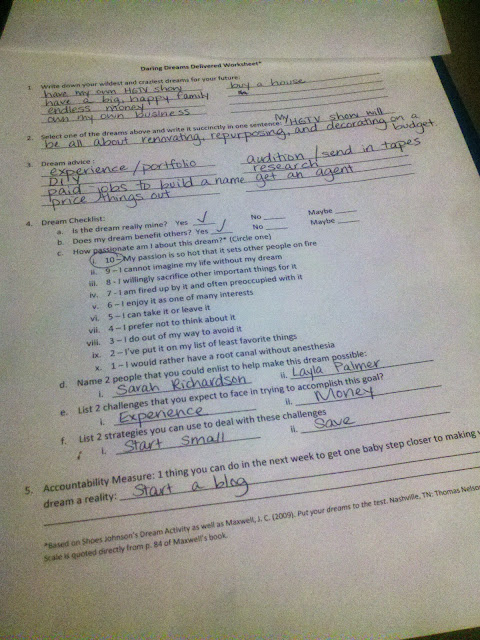 Daring Dreams Delivered Worksheet*
1. Write down your wildest and craziest dreams for your future:
have my own HGTV show buy a house
have a big, happy family
endless money
own my own business
2. Select one of the dreams above and write it succinctly in one sentence: My HGTV show will
be all about renovating, repurposing, and decorating on a
budget.
3. Dream advice:
experience/portfolio audition/send in tapes
DIY research
paid jobs to build a name get an agent
price things out
4. Dream Checklist:
a. Is the dream really mine? Yes ✓ No ____ Maybe ____
b. Does my dream benefit others? Yes ✓ No ____ Maybe ____
c. How passionate am I about this dream?* (Circle one)
i. 10 – My passion is so hot that it sets other people on fire
ii. 9 – I cannot imagine my life without my dream
iii. 8 - I willingly sacrifice other important things for it
iv. 7 - I am fired up by it and often preoccupied with it
v. 6 – I enjoy it as one of many interests
vi. 5 – I can take it or leave it
vii. 4 – I prefer not to think about it
viii. 3 – I do out of my way to avoid it
ix. 2 – I've put it on my list of least favorite things
x. 1 – I would rather have a root canal without anesthesia
d. Name 2 people that you could enlist to help make this dream possible:
i. Sarah Richardson ii. Layla Palmer
e. List 2 challenges that you expect to face in trying to accomplish this goal?
i. Experience ii. Money
f. List 2 strategies you can use to deal with these challenges
i. Start small ii. Save
5. Accountability Measure: 1 thing you can do in the next week to get one baby step closer to making
dream a reality: Start a blog
*Based on Shoes Johnson's Dream Activity as well as Maxwell, J. C. (2009). Put your dreams to the test. Nashville, TN: Thomas Nelson
Scale is quoted directly from p. 84 of Maxwell's book.